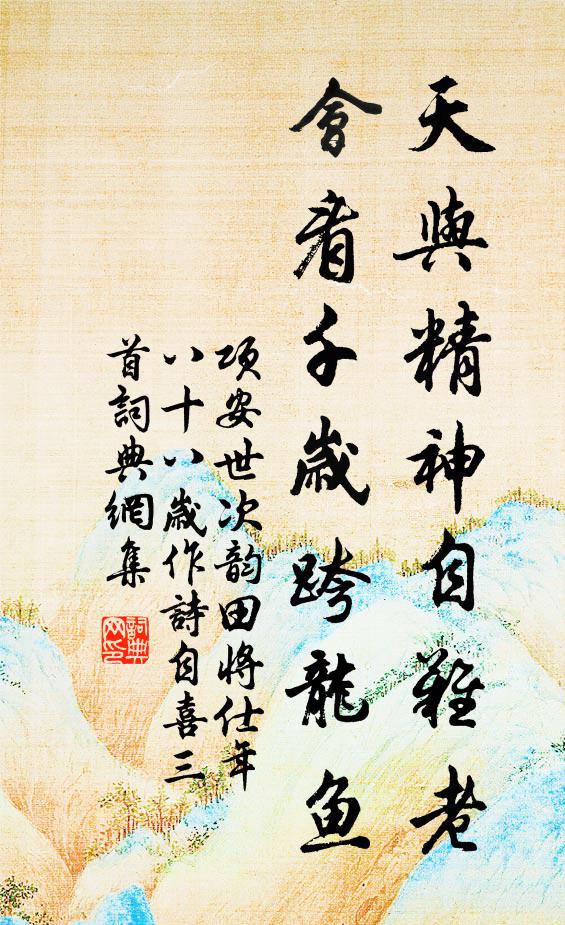 天與精神自難老
會看千歲跨龍魚
項安世次韵田將仕年
八十八歲作詩自喜三
首詞典網集
詞典
网印